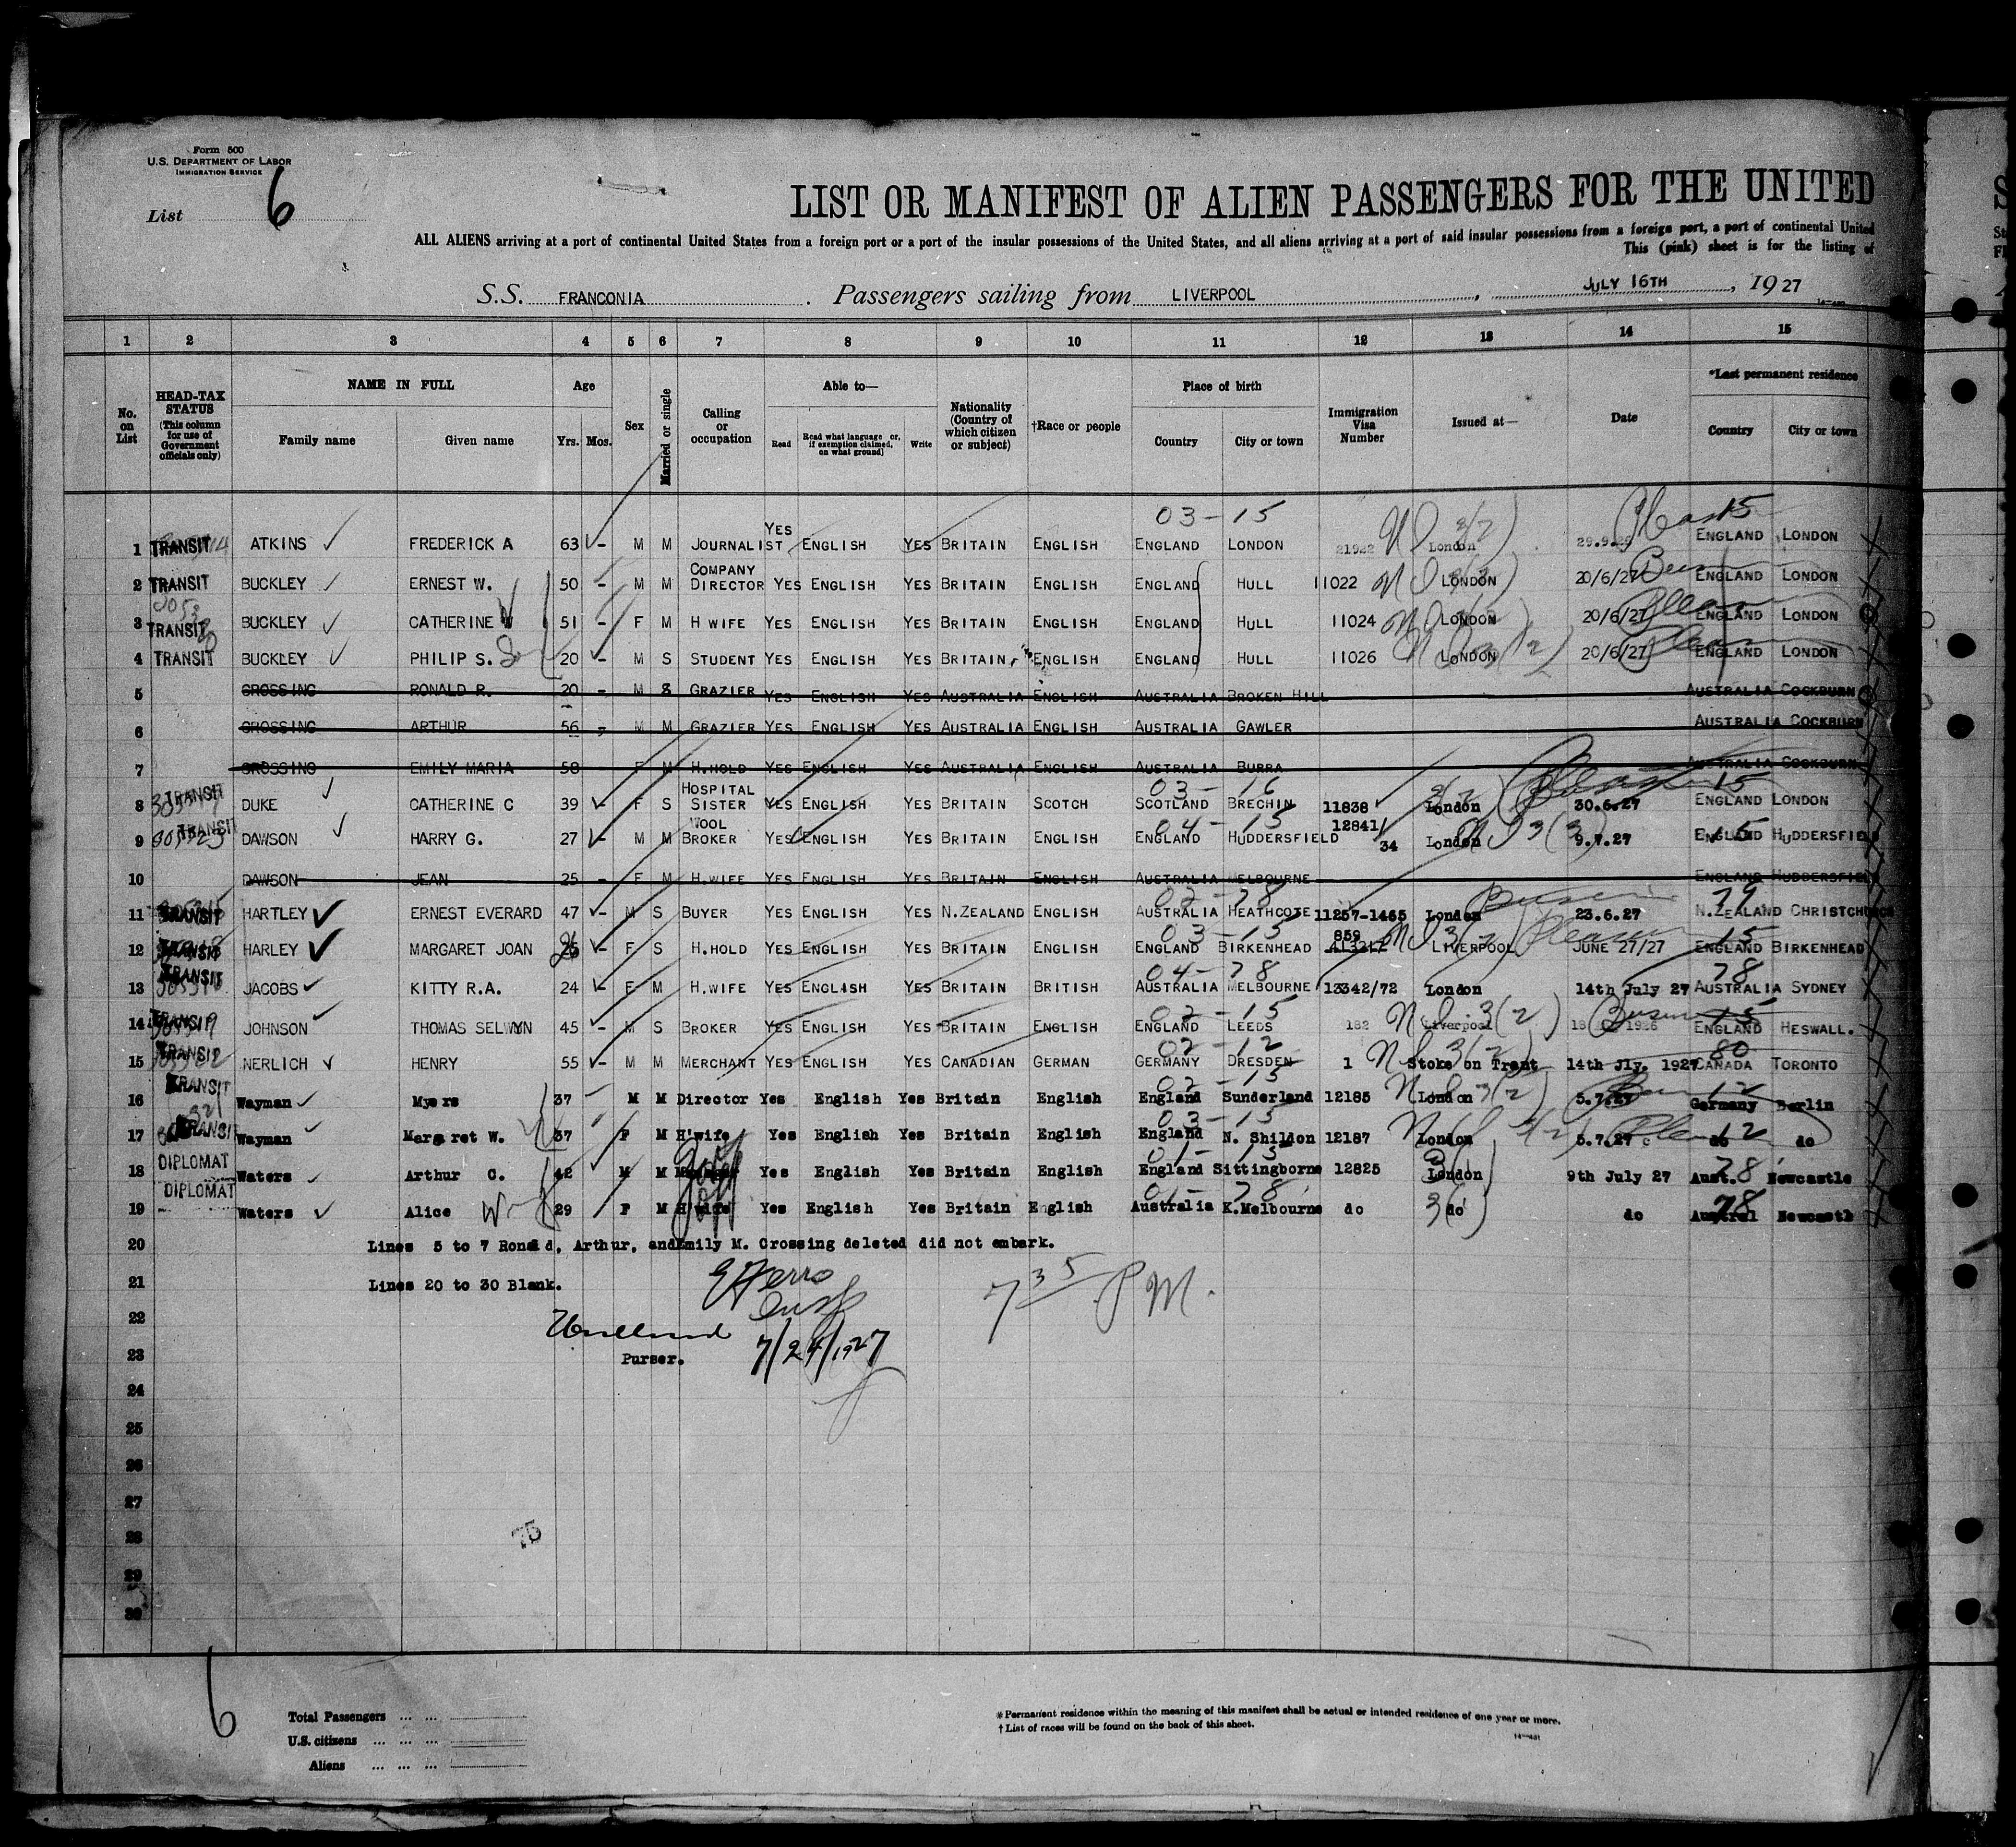 Form 500
U.S. DEPARTMENT OF LABOR
IMMIGRATION SERVICE
List 6
LIST OR MANIFEST OF ALIEN PASSENGERS FOR THE UNITED
ALL ALIENS arriving at a port of continental United States from a foreign port or a port of the insular possessions of the United States, and all aliens arriving at a port of said insular possessions from a foreign port, a port of continental United
This (pink) sheet is for the listing of
S.S. FRANCONIA . Passengers sailing from LIVERPOOL , JULY 16TH , 1927
1 2 3 4 5 6 7 8 9 10 11 12 13 14 15
No. on List
HEAD-TAX STATUS (This column for use of Government officials only)
NAME IN FULL
Family name
Given name
Age
Yrs. Mos.
Sex
Married or single
Calling or occupation
Able to—
Read
Read what language or, if exemption claimed, on what ground]
Write
Nationality (Country of which citizen or subject)
†Race or people
Place of birth
Country
City or town
Immigration Visa Number
Issued at—
Date
*Last permanent residence
Country
City or town
03 - 15 15
1 TRANSIT ATKINS FREDERICK A 63 - M M JOURNALIST YES ENGLISH YES BRITAIN ENGLISH ENGLAND LONDON 21922 London ENGLAND LONDON
2 TRANSIT BUCKLEY ERNEST W. 50 - M M COMPANY DIRECTOR YES ENGLISH YES BRITAIN ENGLISH ENGLAND HULL 11022 LONDON 20/6/27 ENGLAND LONDON
3 TRANSIT BUCKLEY CATHERINE 51 - F M H WIFE YES ENGLISH YES BRITAIN ENGLISH ENGLAND HULL 11024 LONDON 20/6/27 ENGLAND LONDON
4 TRANSIT BUCKLEY PHILIP S. 20 - M S STUDENT YES ENGLISH YES BRITAIN ENGLISH ENGLAND HULL 11026 LONDON 20/6/27 ENGLAND LONDON
5 CROSSING RONALD R. 20 - M S GRAZIER YES ENGLISH YES AUSTRALIA ENGLISH AUSTRALIA BROKEN HILL AUSTRALIA COCKBURN
6 CROSSING ARTHUR 56 - M M GRAZIER YES ENGLISH YES AUSTRALIA ENGLISH AUSTRALIA GAWLER AUSTRALIA COCKBURN
7 CROSSING EMILY MARIA 58 - F M H.HOLD YES ENGLISH YES AUSTRALIA ENGLISH AUSTRALIA BURRA AUSTRALIA COCKBURN
03 - 16 15
8 TRANSIT DUKE CATHERINE C 39 - F S HOSPITAL SISTER YES ENGLISH YES BRITAIN SCOTCH SCOTLAND BRECHIN 11838 London 30.6.27 ENGLAND LONDON
04 - 15
9 TRANSIT DAWSON HARRY G. 27 - M M WOOL BROKER YES ENGLISH YES BRITAIN ENGLISH ENGLAND HUDDERSFIELD 12841/34 London 9.7.27 ENGLAND HUDDERSFIELD
10 DAWSON JEAN 25 - F M H.WIFE YES ENGLISH YES BRITAIN ENGLISH AUSTRALIA MELBOURNE ENGLAND HUDDERSFIELD
02 - 78 79
11 TRANSIT HARTLEY ERNEST EVERARD 47 - M S BUYER YES ENGLISH YES N.ZEALAND ENGLISH AUSTRALIA HEATHCOTE 11257-1465 London 23.6.27 N.ZEALAND CHRISTCHURCH
03 - 15 859 15
12 TRANSIT HARLEY MARGARET JOAN 26 - F S H.HOLD YES ENGLISH YES BRITAIN ENGLISH ENGLAND BIRKENHEAD LIVERPOOL JUNE 27/27 ENGLAND BIRKENHEAD
04 - 78 78
13 TRANSIT JACOBS KITTY R.A. 24 - F M H.WIFE YES ENGLISH YES BRITAIN BRITISH AUSTRALIA MELBOURNE 13342/72 London 14th July 27 AUSTRALIA SYDNEY
02 - 15 15
14 TRANSIT JOHNSON THOMAS SELWYN 45 - M S BROKER YES ENGLISH YES BRITAIN ENGLISH ENGLAND LEEDS 182 Liverpool 1926 ENGLAND HESWALL.
02 - 12 80
15 TRANSIT NERLICH HENRY 55 - M M MERCHANT YES ENGLISH YES CANADIAN GERMAN GERMANY DRESDEN 1 Stoke on Trent 14th Jly. 1927 CANADA TORONTO
02 - 15 12
16 TRANSIT Wayman Myers 37 M M Director Yes English Yes Britain English England Sunderland 12185 London 5.7.27 Germany Berlin
03 - 15 12
17 TRANSIT Wayman Margaret W. 37 F M H'wife Yes English Yes Britain English England N. Shildon 12187 London 5.7.27 do do
01 - 15 78
18 DIPLOMAT Waters Arthur C. 42 M M Yes English Yes Britain English England Sittingborne 12825 London 9th July 27 Aust. Newcastle
01 - 78 78
19 DIPLOMAT Waters Alice 29 F M H'wife Yes English Yes Britain English Australia K.Melbourne do do do Austral Newcastle
20 Lines 5 to 7 Ronald, Arthur, and Emily M. Crossing deleted did not embark.
21 Lines 20 to 30 Blank.
7 35 PM.
22
23 Purser. 7/24/1927
24
25
26
27
28
75
29
30
6
Total Passengers ... ...
U.S. citizens ... ... ...
Aliens ... ... ...
*Permanent residence within the meaning of this manifest shall be actual or intended residence of one year or more.
†List of races will be found on the back of this sheet.